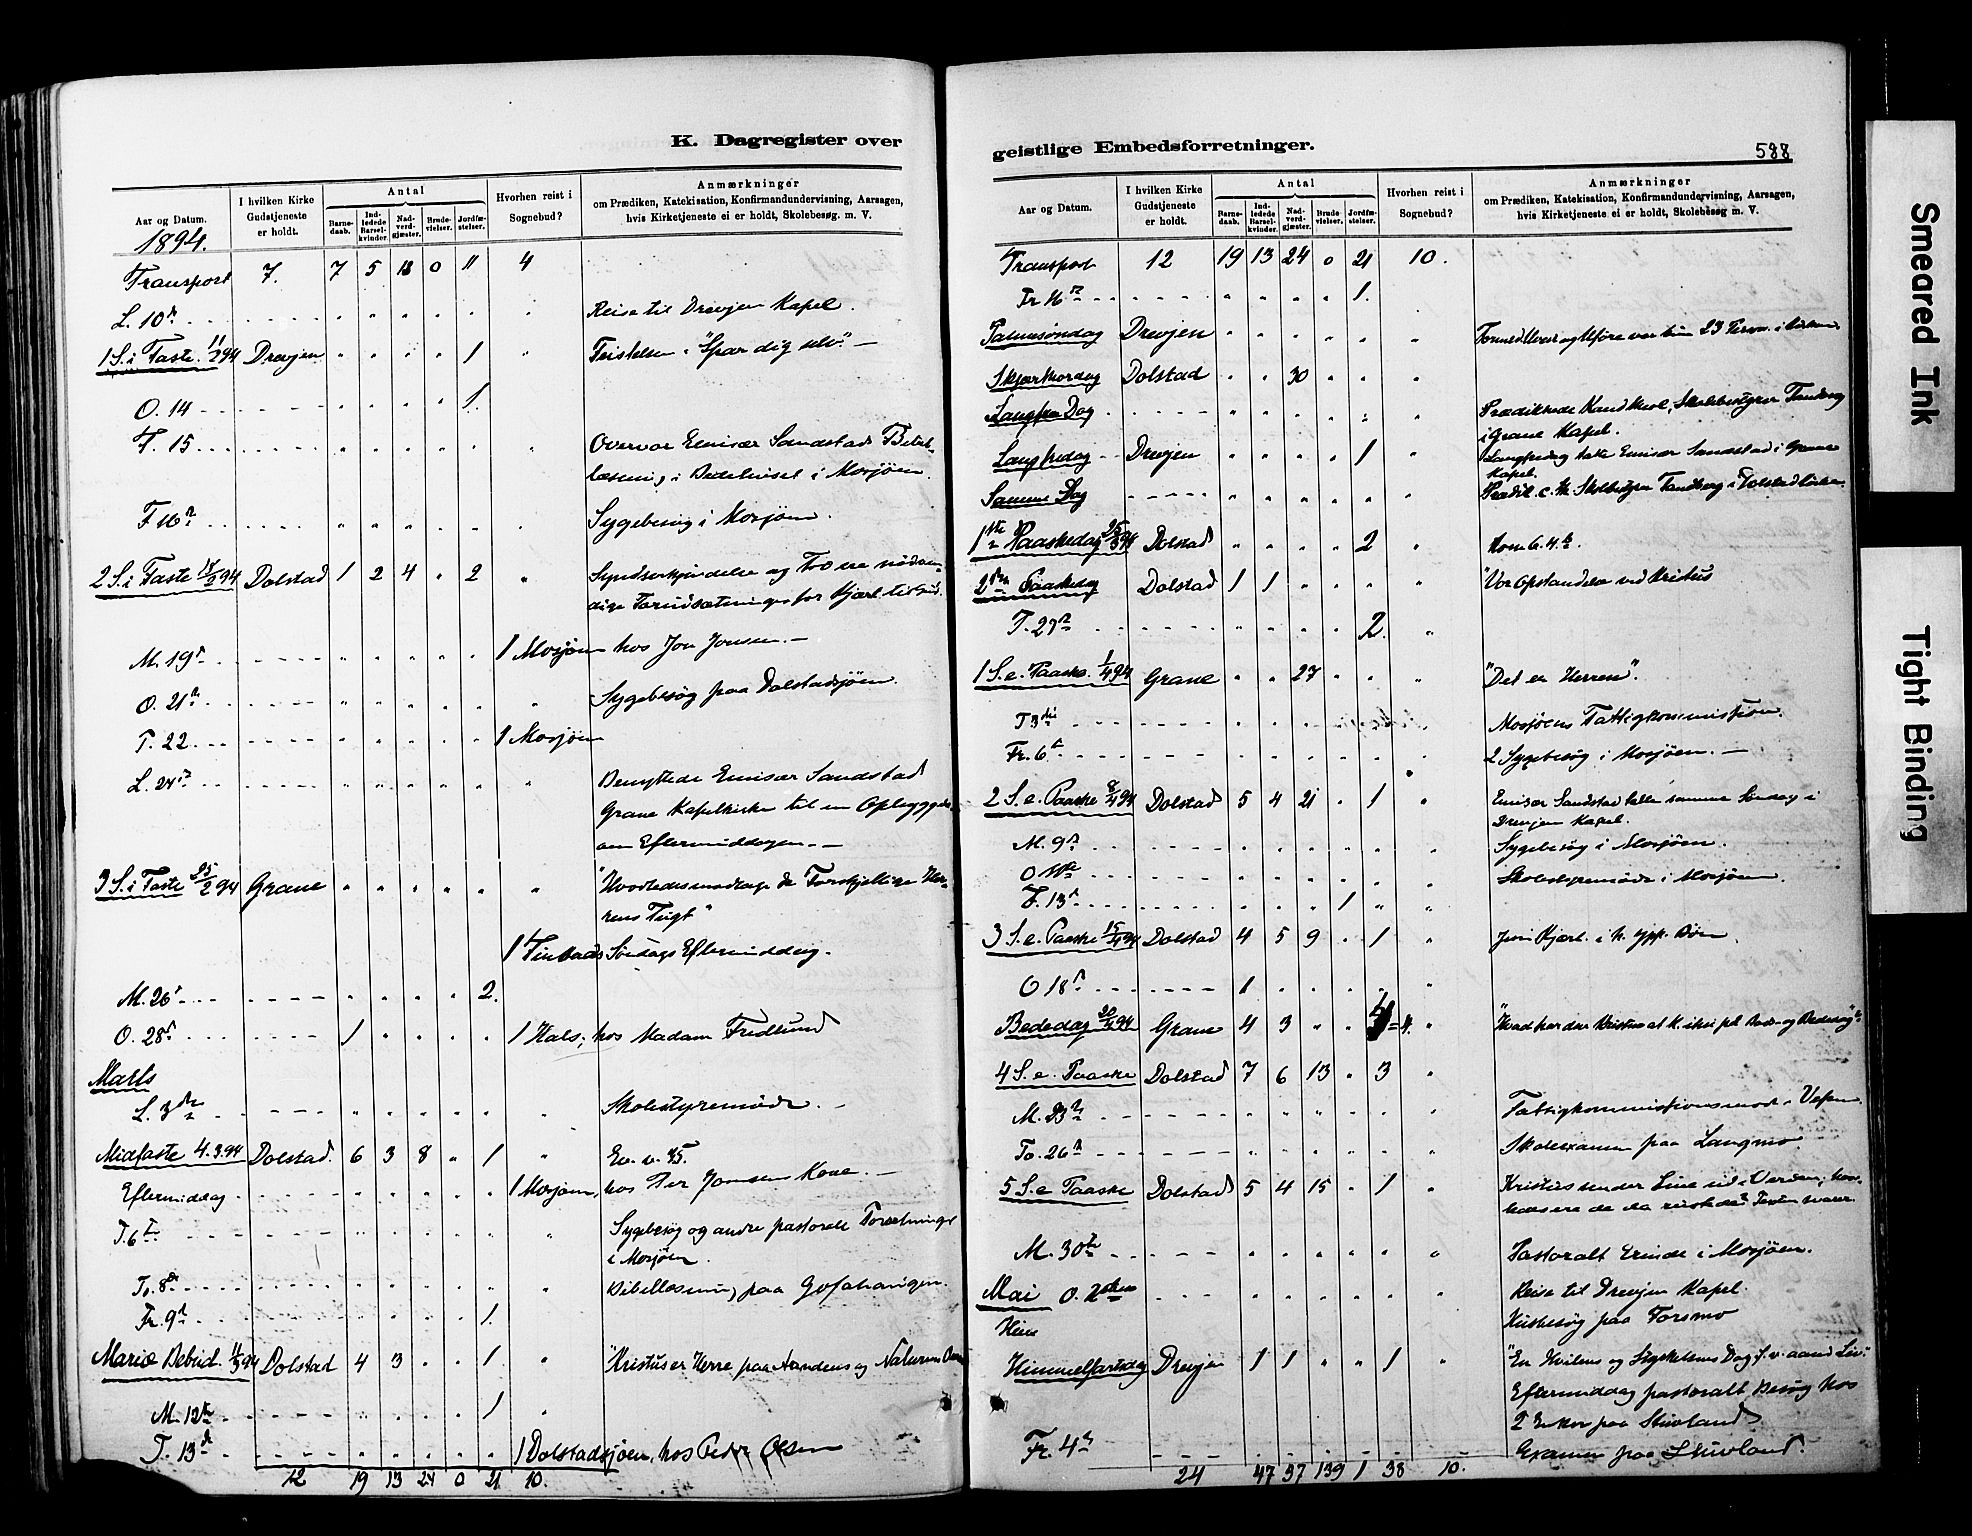 K. Dagregister over
Aar og Datum.
I hvilken Kirke Gudstjeneste er holdt.
Antal
Barne-daab.
Ind-ledede Barsel-kvinder.
Nad-verd-gjæster.
Brude-vielser.
Jordfæ-stelser.
Hvorhen reist i Sognebud?
Anmærkninger
om Prædiken, Katekisation, Konfirmandundervisning, Aarsagen,
hvis Kirketjeneste ei er holdt, Skolebesøg. m. V.
1894.
Transport 7. 7 5 18 0 11 4
L. 10 Reise til Drevjen Kapel.
1 S. i Faste. 11/2 94 Drevjen 1 "Spar dig selv" —
O. 14 1.
T. 15 Overvar Emisær Sandstads Bibel-
læsning i Bedehuset i Mosjøen.
F 16 Sygebesøg i Mosjøen.
2 S. i Faste 18/2 94 Dolstad 1 2 4 2 og Tro ere nødven-
dige
M. 19 1 Mosjøen hos Jon Jonsen. —
O. 21 Sygebesøg paa Dolstadsjøen.
T. 22 1 Mosjøen
L. 24 Benyttede Emisær Sandstad
Grane Kapelkirke til en Opbyggelse
om Eftermiddagen. —
3 S. i Faste 25/2 94 Grane "Hvorledes modtage de Forskjellige Her-
rens Tugt"
1 Søndags Eftermiddag.
M. 26 2.
O. 28 1 1 Hals, hos Madam Fredlund
Marts
L. 3 Skolestyremøde. —
Midfaste 4.3.94 Dolstad. 6 3 8 1 Ev. v. 35.
Eftermiddag 1 Mosjøen, hos Per Jonsen Kone. —
T. 6 Sygebesøg og andre pastorale Forretninger
i Mosjøen.
To. 8 Bibellæsning paa
Fr. 9 1.
Mariæ Bebud. 11/3 94 Dolstad 4 3 1 "Kristus er Herre paa Aandens og Naturens
M. 12 1
T. 13 1 Dolstadsjøen, hos Peder Olsen
12 19 13 24 0 21 10.
geistlige Embedsforretninger.
588
Aar og Datum.
I hvilken Kirke Gudstjeneste er holdt.
Antal
Barne-daab.
Ind-ledede Barsel-kvinder.
Nad-verd-gjæster.
Brude-vielser.
Jordfæ-stelser.
Hvorhen reist i Sognebud?
Anmærkninger
om Prædiken, Katekisation, Konfirmandundervisning, Aarsagen,
hvis Kirketjeneste ei er holdt, Skolebesøg m. V.
Transport 12 19 13 24 0 21 10.
Fr 16 1.
Palmesøndag Drevjen var kun 23 Person. i Kirken
Skjærthorsdag Dolstad 30
Langfre Dag Prædikede Skolebestyrer Tandberg
i Grane Kapel.
Langfredag Drevjen 1 Langfredag talte Emisær Sandstad i Grane
Kapel.
Samme Dag Skolbestyrer Tandberg i Dolstad Kirke.
1ste Paaskedag 25/3 94 Dolstad 2 Rom. 6. 4.
2den Paaskedag Dolstad 1 1 "Vor Opstandelse ved Kristus
T. 27 2
1 S. e. Paaske. 1/4 94 Grane 27 "Det er Herren".
T 3die Mosjøens Fattigkommission.
Fr. 6 2 Sygebesøg i Mosjøen. —
2 S. e. Paaske 8/4 94 Dolstad 5 4 21 1 Emisær Sandstad talte samme Søndag i
Drevjen Kapel.
M. 9 Sygebesøg i Mosjøen.
O 11 Skolestyremøde i Mosjøen.
F. 13 1
3 S. e. Paaske 15/4 94 Dolstad 4 5 9 1
O 18 1
Bededag 20/4 94 Grane 4 3 4 = 4.
4 S. e. Paaske Dolstad 7 6 13 3
M. 23 Fattigkommissionsmøde i Vefsen.
To. 26 Skolexamen paa Langmo
5 S. e Paaske Dolstad 5 4 15 1 Kristus sender Sine ud i Verden;
M. 30 Pastoralt Erinde i Mosjøen.
Mai O. 2den Reise til Drevjen Kapel.
Husbesøg paa Forsmo
Himmelfartsdag Drevjen 1 1 1 "En Hvilens og Styrkelsens Dag f. v. aand Liv."
Eftermiddag pastoralt Besøg hos
2 Enker paa Stuvland
Fr. 4 Examen paa Stuvland.
24 47 37 139 1 38 10.
Smeared Ink
Tight Binding